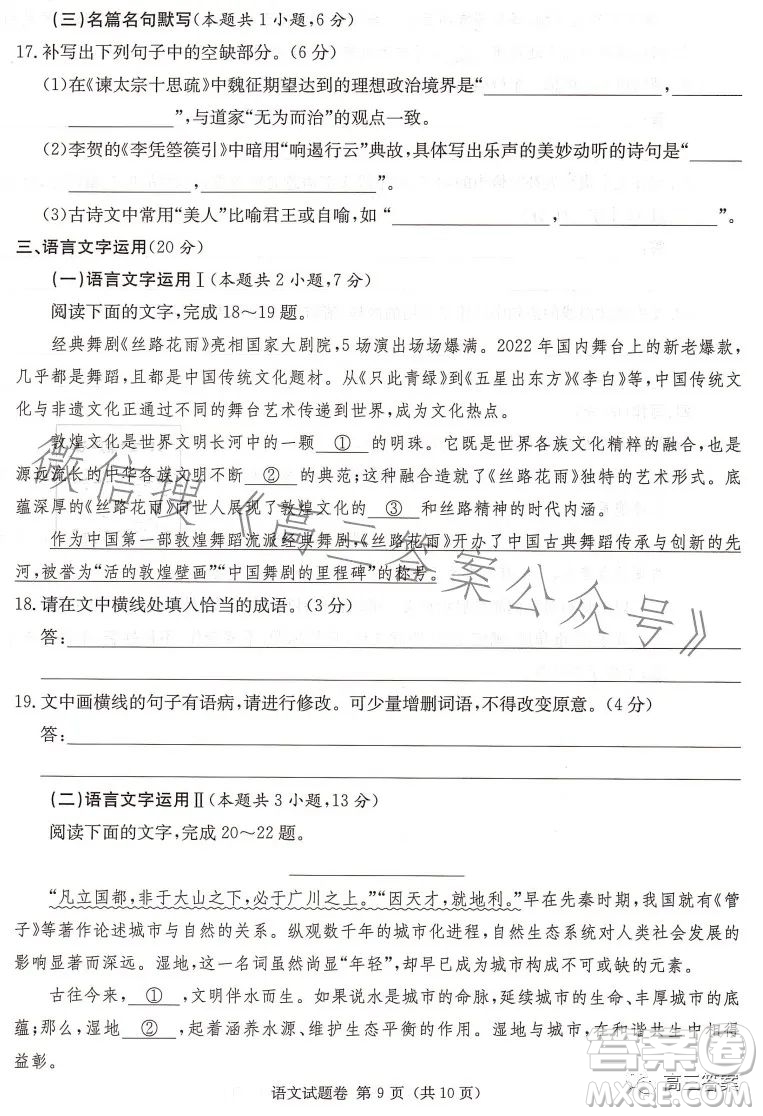 (三)名篇名句默写(本题共1小题,6分)
17.补写出下列句子中的空缺部分。(6分)
(1)在《谏太宗十思疏》中魏征期望达到的理想政治境界是“____________,____
____________”,与道家“无为而治”的观点一致。
(2)李贺的《李凭箜篌引》中暗用“响遏行云”典故,具体写出乐声的美妙动听的诗句是“________
____________,____________”。
(3)古诗文中常用“美人”比喻君王或自喻,如“____________,____________”。
三、语言文字运用(20分)
(一)语言文字运用Ⅰ(本题共2小题,7分)
阅读下面的文字,完成18～19题。
经典舞剧《丝路花雨》亮相国家大剧院,5场演出场场爆满。2022年国内舞台上的新老爆款,
几乎都是舞蹈,且都是中国传统文化题材。从《只此青绿》到《五星出东方》《李白》等,中国传统
文化与非遗文化正通过不同的舞台艺术传递到世界,成为文化热点。
敦煌文化是世界文明长河中的一颗 ① 的明珠。它既是世界各族文化精粹的融合,也是
源远流长的中华各族文明不断 ② 的典范;这种融合造就了《丝路花雨》独特的艺术形式。底
蕴深厚的《丝路花雨》向世人展示了敦煌文化的 ③ 和丝路精神的时代内涵。
作为中国第一部敦煌舞蹈流派经典舞剧,《丝路花雨》开办了中国古典舞蹈传承与创新的先
河,被誉为“活的敦煌壁画”“中国舞剧的里程碑”的称号。
18.请在文中横线处填入恰当的成语。(3分)
答:
19.文中画横线的句子有语病,请进行修改。可少量增删词语,不得改变原意。(4分)
答:
(二)语言文字运用Ⅱ(本题共3小题,13分)
阅读下面的文字,完成20～22题。
“凡立国都,非于大山之下,必于广川之上。”“因天才,就地利。”早在先秦时期,我国就有《管
子》等著作论述城市与自然的关系。纵观数千年的城市化进程,自然生态系统对人类社会发展的
影响尤为显著。湿地,这一名词虽然尚显“年轻”,却早已成为城市演化不可或缺的元素。
古往今来, ① ,文明伴水而生。如果说水是城市的命脉,延续城市的生命、丰厚城市的底
蕴;那么,湿地 ② ,起着涵养水源、维护生态平衡的作用。湿地与城市在和谐共生中相得
益彰。
语文试题卷 第9页(共10页)
微信搜《高三答案公众号》
高三答案
答案圈
MXQE.COM